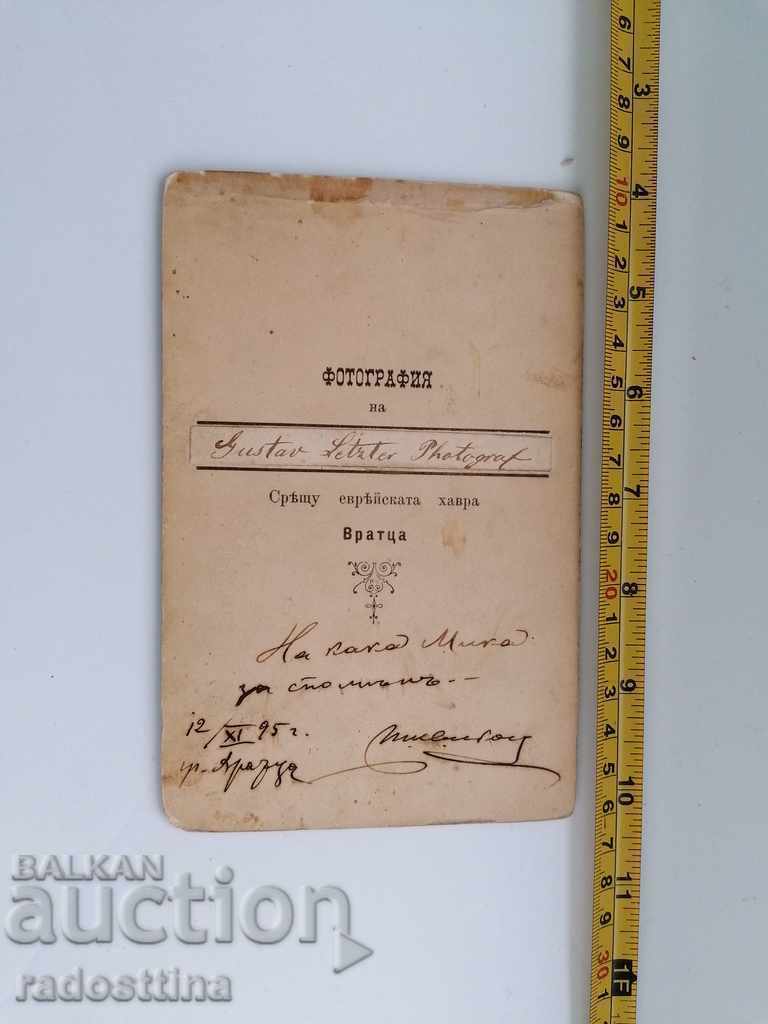 ФОТОГРАФИЯ
на
Gustav Letzter Photograf
Срѣщу еврѣйската хавра
Вратца
На кака Мика
за споменъ.-
12/XI 95 г.
гр. Вратца
BALKAN
auction
radosttina
6 7 8 9 10 1 2 3 4 5 6 7 8 9 20 1 2 3 4 5 6 7 8 9 30 1
3 4 5 6 7 8 9 10 11 1F